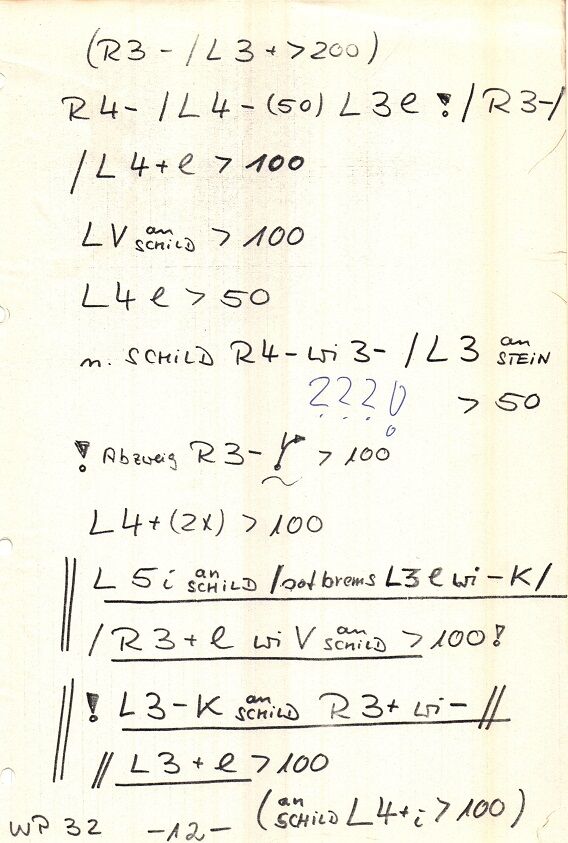 (R3-/L3+>200)
R4-/L4-(50) L3e !/R3-/
/L4+e > 100
LV an SCHILD > 100
L4e > 50
n. SCHILD R4- wi 3- /L3 an STEIN
???! > 50
! Abzweig R3- > 100
L4+(2x) > 100
L5i an SCHILD /satbrems L3e wi-K/
/R3+e wi V an SCHILD > 100!
! L3-K an SCHILD R3+ wi- //
// L3+e > 100
(an SCHILD L4+i > 100)
WP 32 -12-